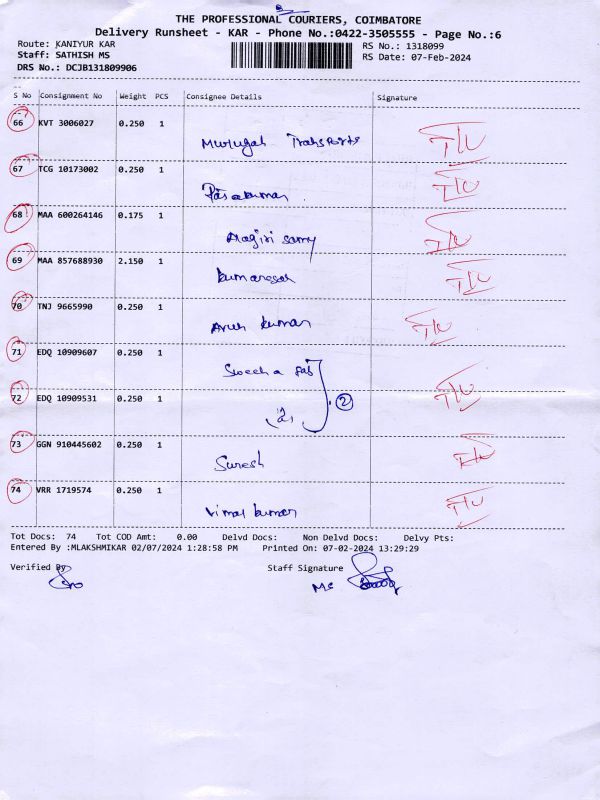 THE PROFESSIONAL COURIERS, COIMBATORE
Delivery Runsheet - KAR - Phone No.:0422-3505555 - Page No.:6
Route: KANIYUR KAR RS No.: 1318099
Staff: SATHISH MS RS Date: 07-Feb-2024
DRS No.: DCJB131809906
S No Consignment No Weight PCS Consignee Details Signature
66 KVT 3006027 0.250 1
Murugan Transports
67 TCG 10173002 0.250 1
68 MAA 600264146 0.175 1
69 MAA 857688930 2.150 1
70 TNJ 9665990 0.250 1
Arun kumar
71 EDQ 10909607 0.250 1
72 EDQ 10909531 0.250 1
2
73 GGN 910445602 0.250 1
Suresh
74 VRR 1719574 0.250 1
Vimal kumar
Tot Docs: 74 Tot COD Amt: 0.00 Delvd Docs: Non Delvd Docs: Delvy Pts:
Entered By :MLAKSHMIKAR 02/07/2024 1:28:58 PM Printed On: 07-02-2024 13:29:29
Verified By Staff Signature